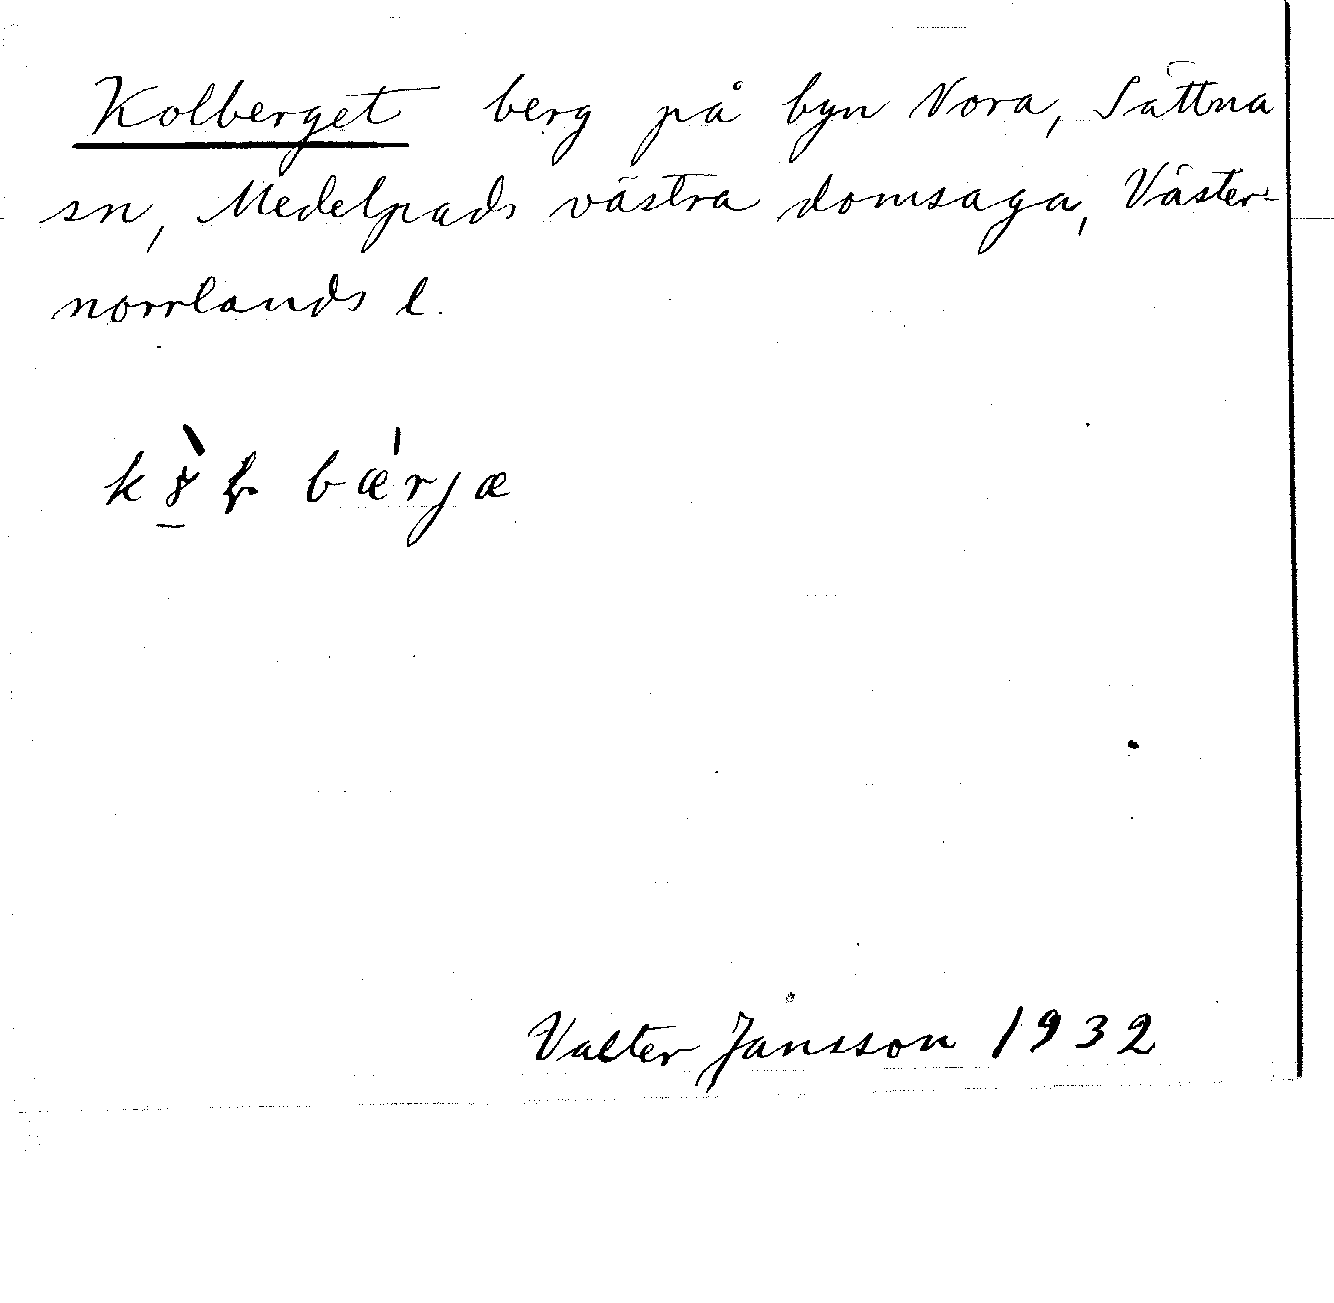 Kolberget berg på byn Nora, Sättna
sn, Medelpads västra domsaga, Väster-
norrlands l.
bærjæ
Valter Jansson 1932